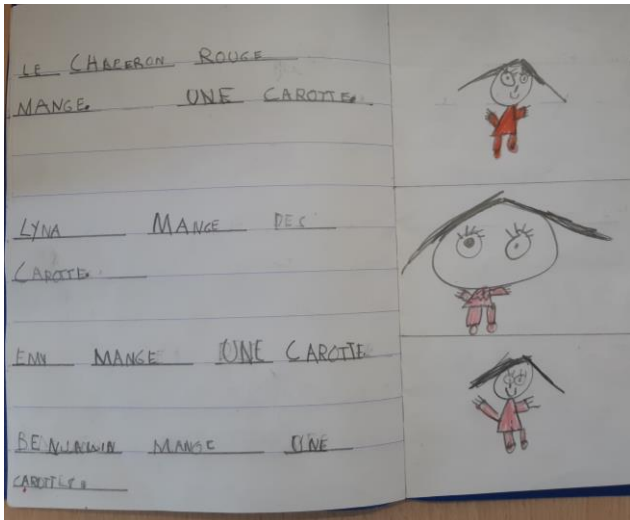 LE CHAPERON ROUGE
MANGE. UNE CAROTTE.
LYNA MANGE DES
CAROTTE.
EMY MANGE UNE CAROTTE
BENJAMIN MANGE UNE